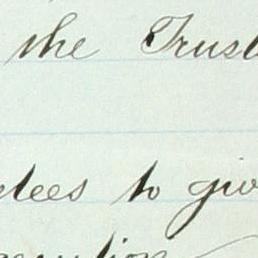 the Trust
tees to giv